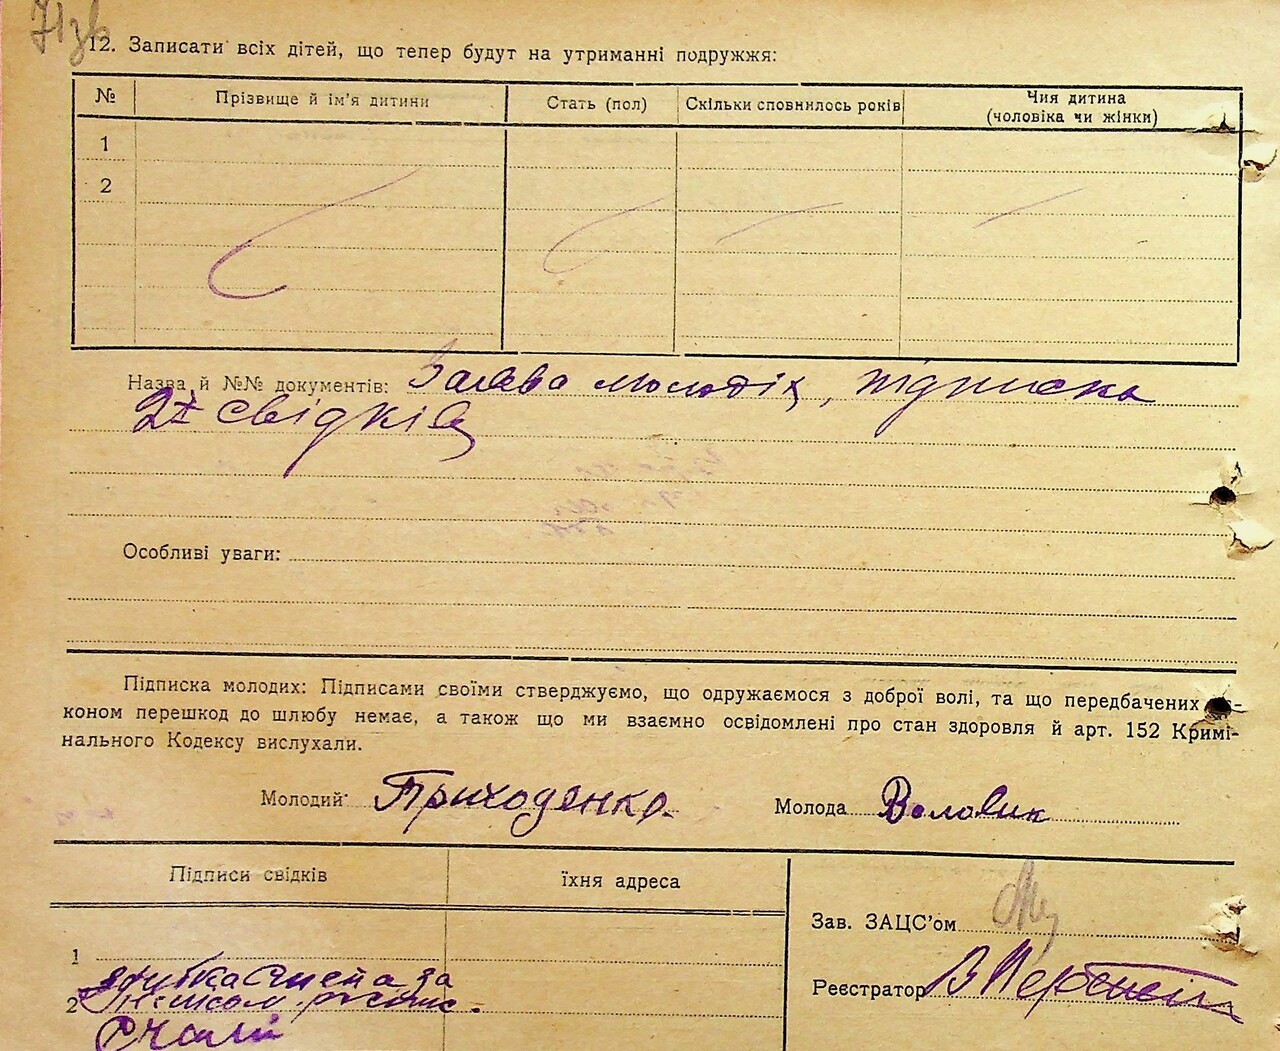 71зв
12. Записати всіх дітей, що тепер будут на утриманні подружжя:
№ Прізвище й ім'я дитини Стать (пол) Скільки сповнилось років Чия дитина (чоловіка чи жінки)
1
2
Назва й №№ документів: Заява молодих, підписка
2х свідків
Особливі уваги:
Підписка молодих: Підписами своїми стверджуємо, що одружаємося з доброї волі, та що передбачених
коном перешкод до шлюбу немає, а також що ми взаємно освідомлені про стан здоровля й арт. 152 Кримі-
нального Кодексу вислухали.
Молодий Приходенко Молода Воловик
Підписи свідків їхня адреса
Зав. ЗАЦС'ом
1
2
Реєстратор